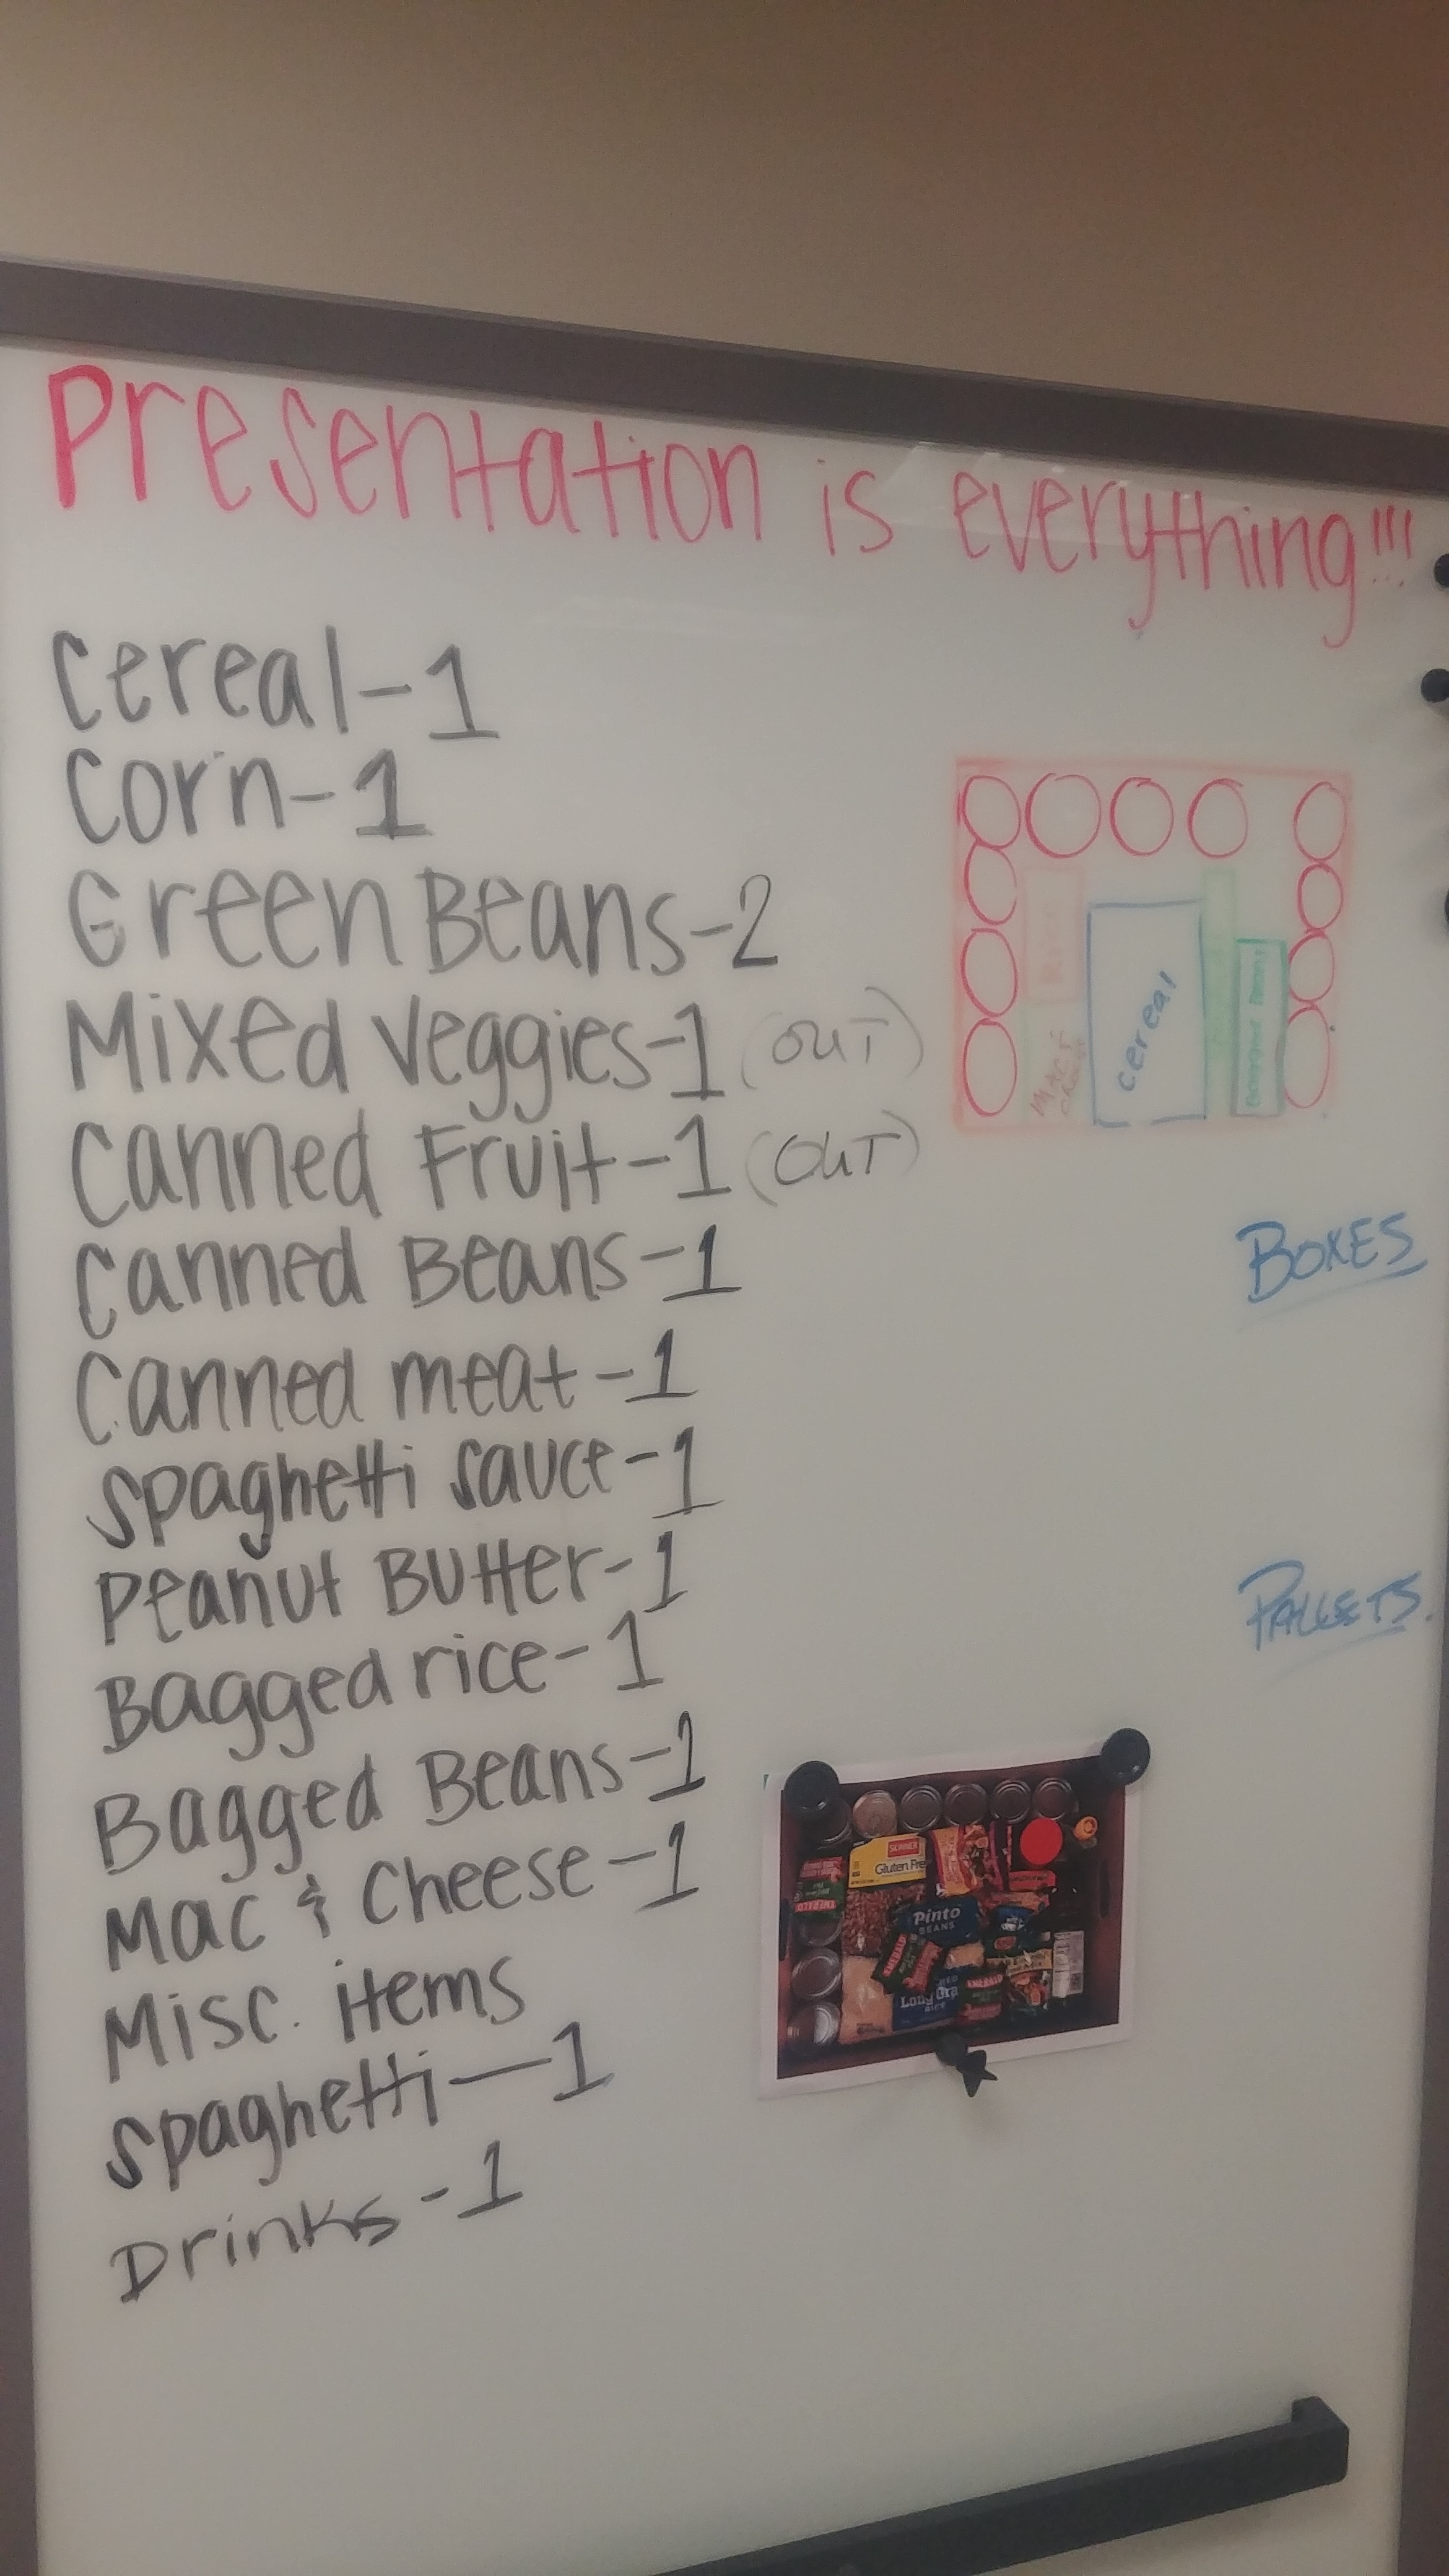 Presentation is everything!!!
Cereal-1
Corn-1
Green Beans-2
Mixed veggies-1 (OUT)
Canned Fruit-1 (OUT)
Canned Beans-1
Canned meat-1
Spaghetti sauce-1
Peanut Butter-1
Bagged rice-1
Bagged Beans-1
Mac & Cheese-1
Misc. items
Spaghetti-1
Drinks-1
Rice
cereal
MAC &
BOXES
PALLETS
SKINNER
Gluten Fre
Pinto
BEANS
EMERALD
EMERALD
Long Gra
RICE